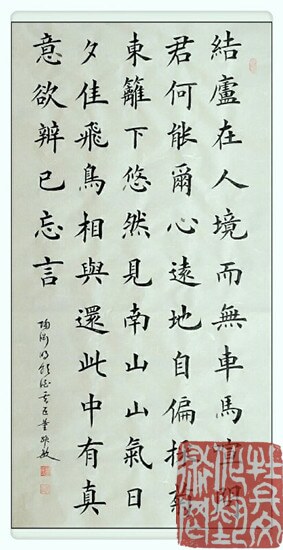 結廬在人境而無車馬喧問
君何能爾心遠地自偏採菊
東籬下悠然見南山山氣日
夕佳飛鳥相與還此中有真
意欲辨已忘言
陶淵明飲酒